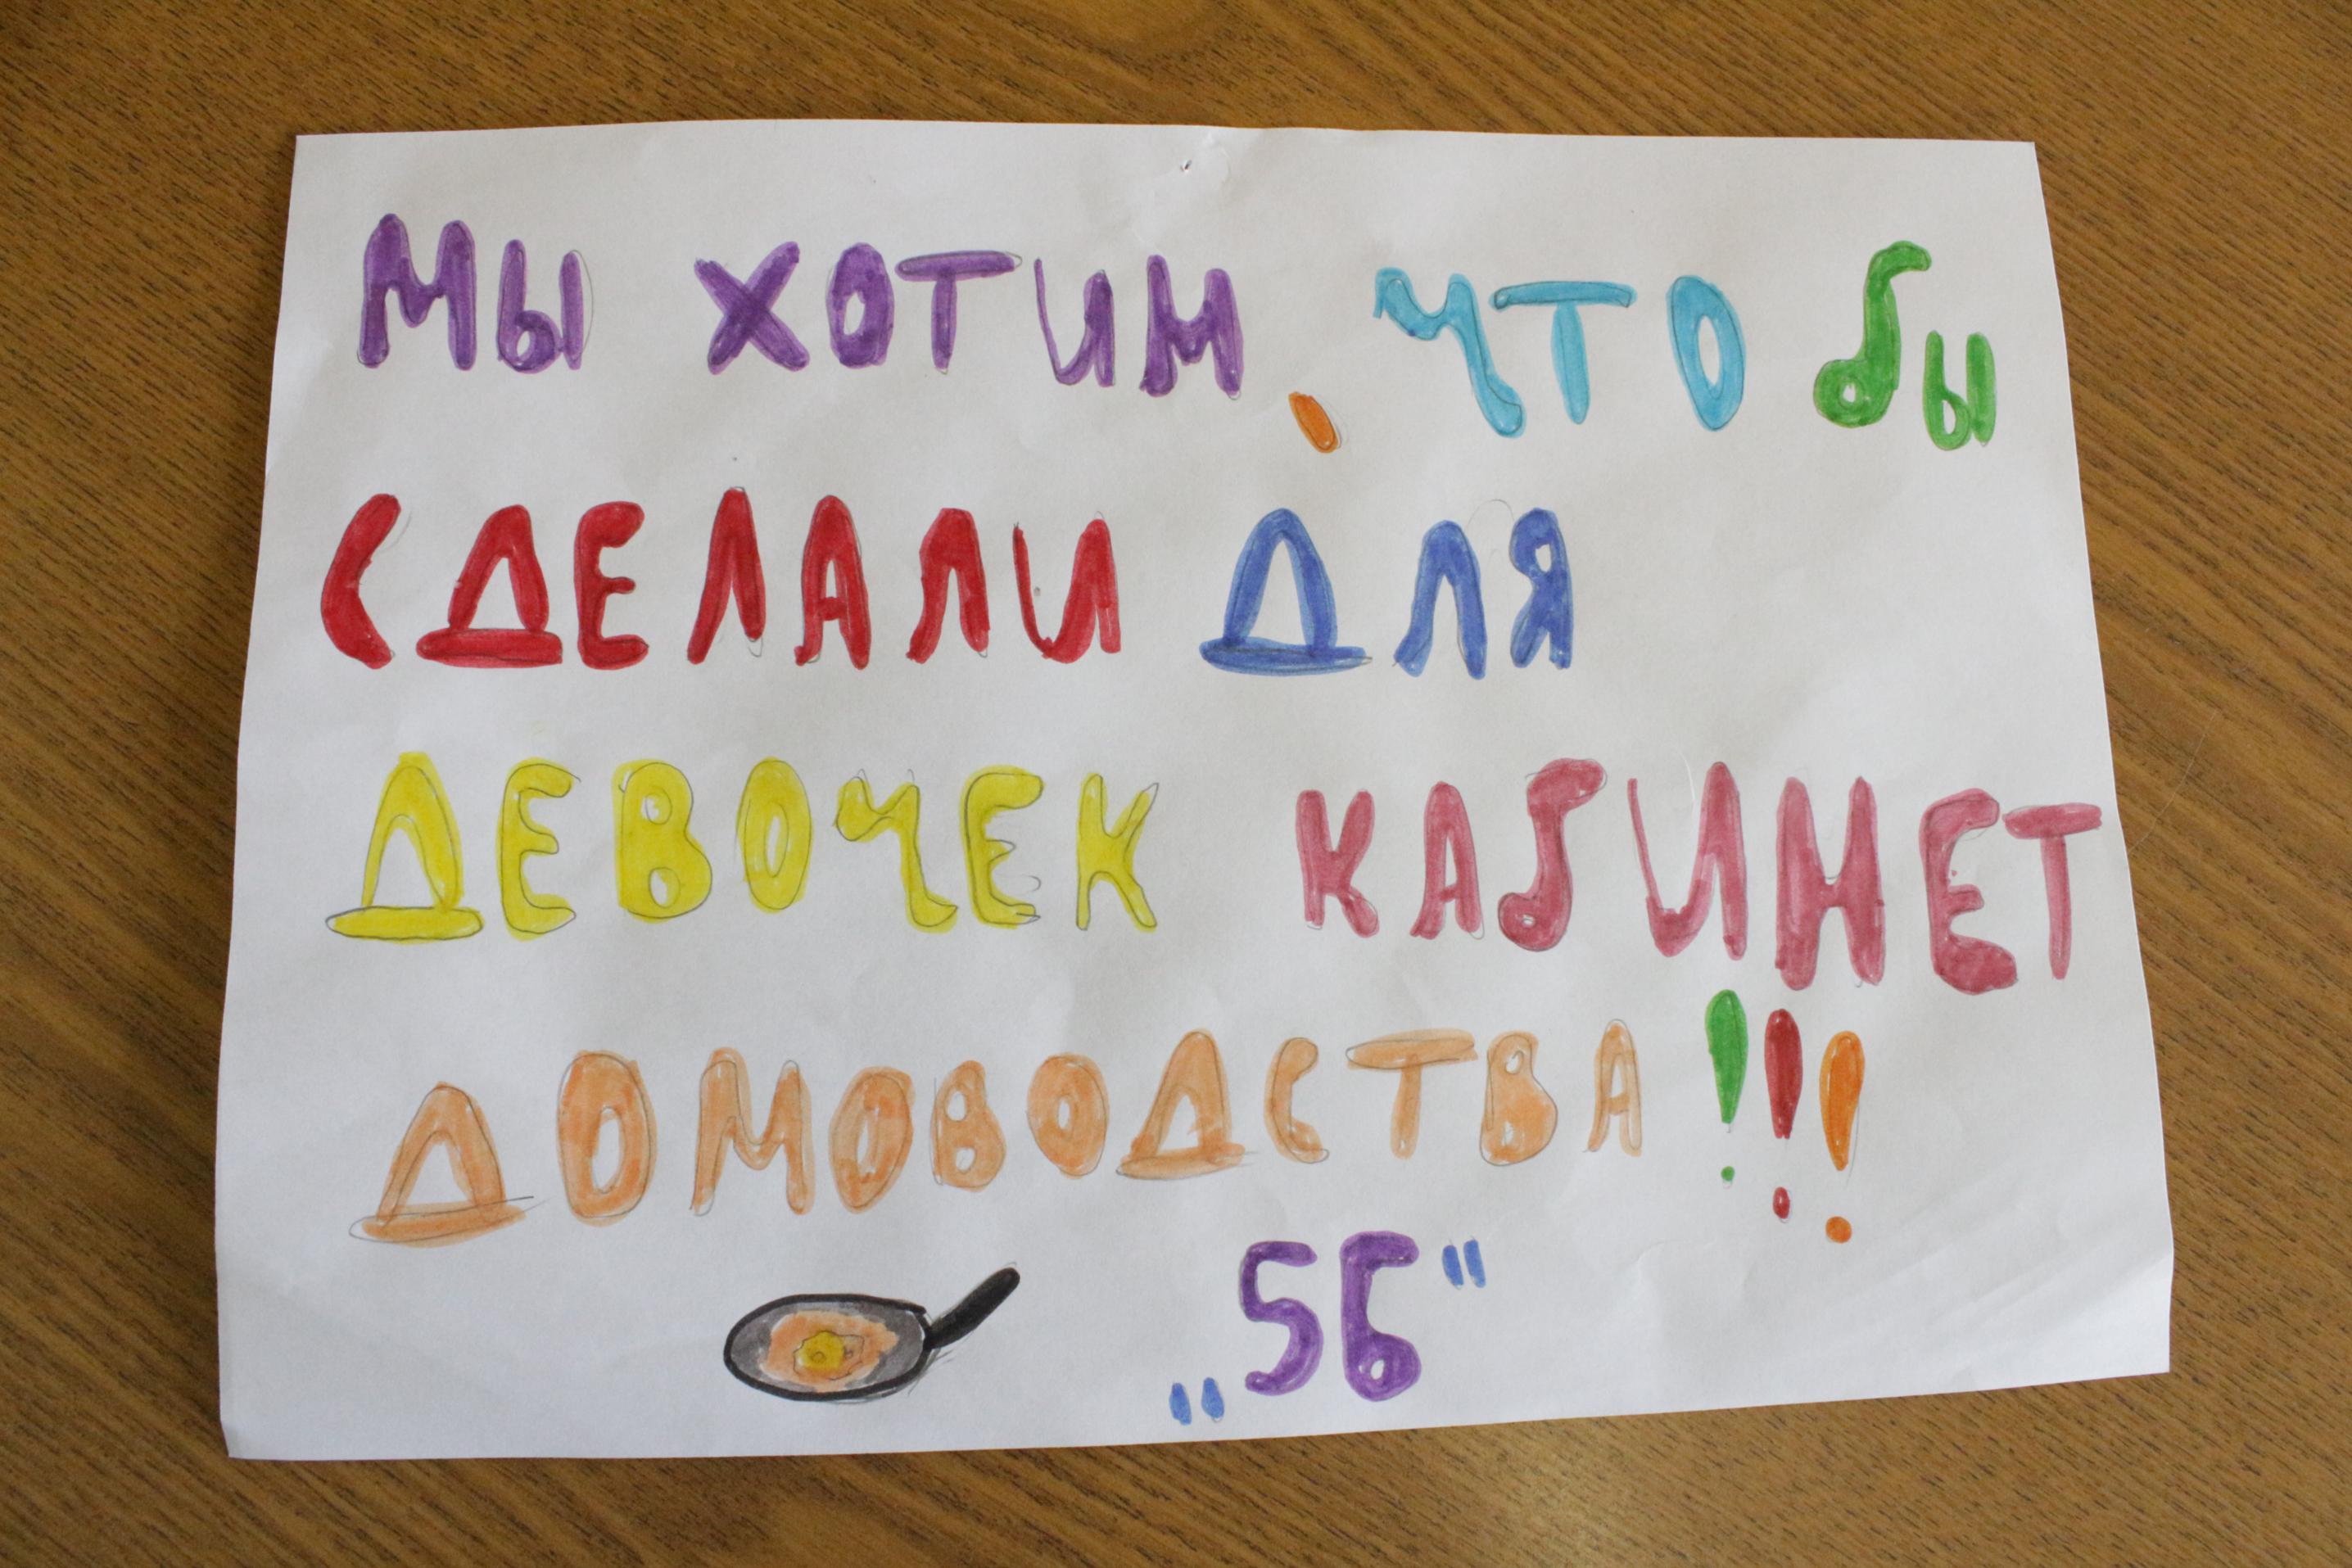 Мы хотим, что бы
сделали для
девочек кабинет
домоводства!!!
„5Б"